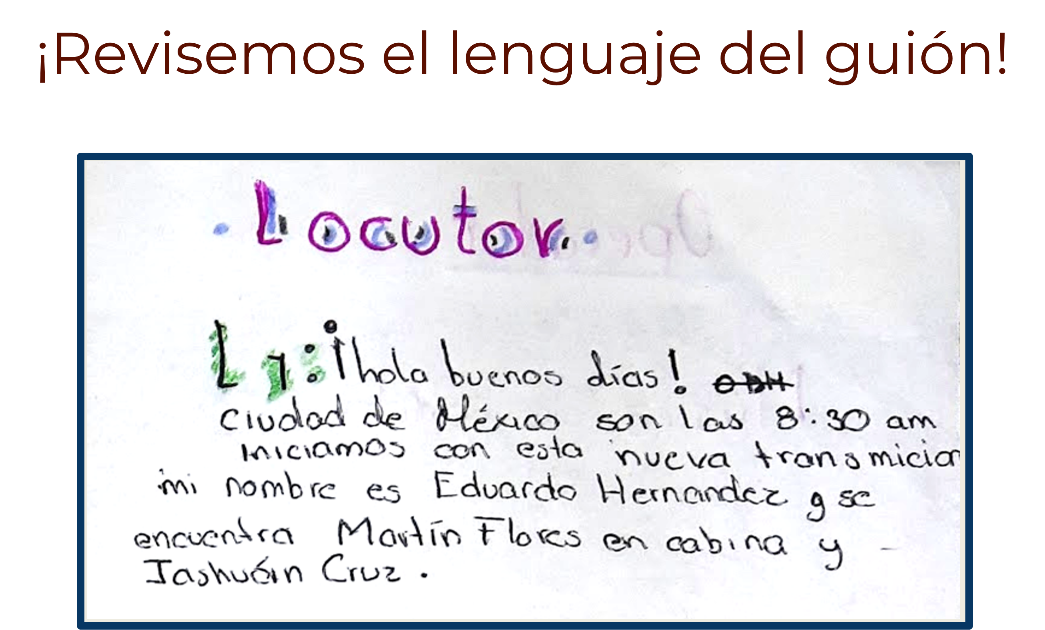 ¡Revisemos el lenguaje del guión!
Locutor.
L1: ¡hola buenos días!
ciudad de México son las 8:30 am
iniciamos con esta nueva transmicion
mi nombre es Eduardo Hernandez y se
encuentra Martín Flores en cabina y
Jashuán Cruz.